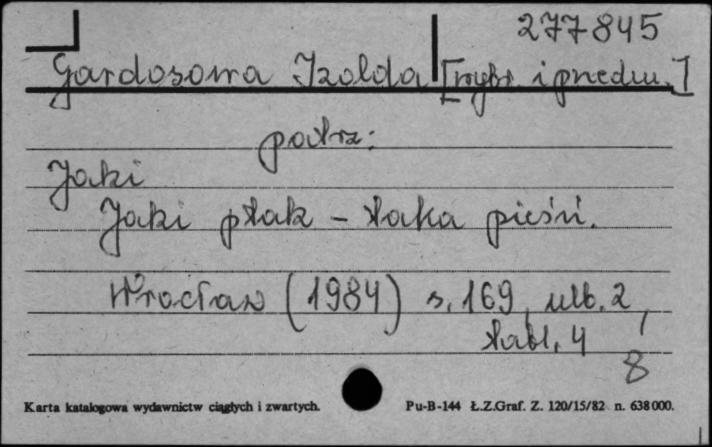 277845
Gardosowa Izolda [wybr. i przedm.]
patrz:
Jaki
Jaki ptak – taka pieśń.
Wrocław (1984) s. 169, nlb. 2,
tabl. 4
8
Karta katalogowa wydawnictw ciągłych i zwartych.
Pu-B-144 Ł.Z.Graf. Z. 120/15/82 n. 638000.